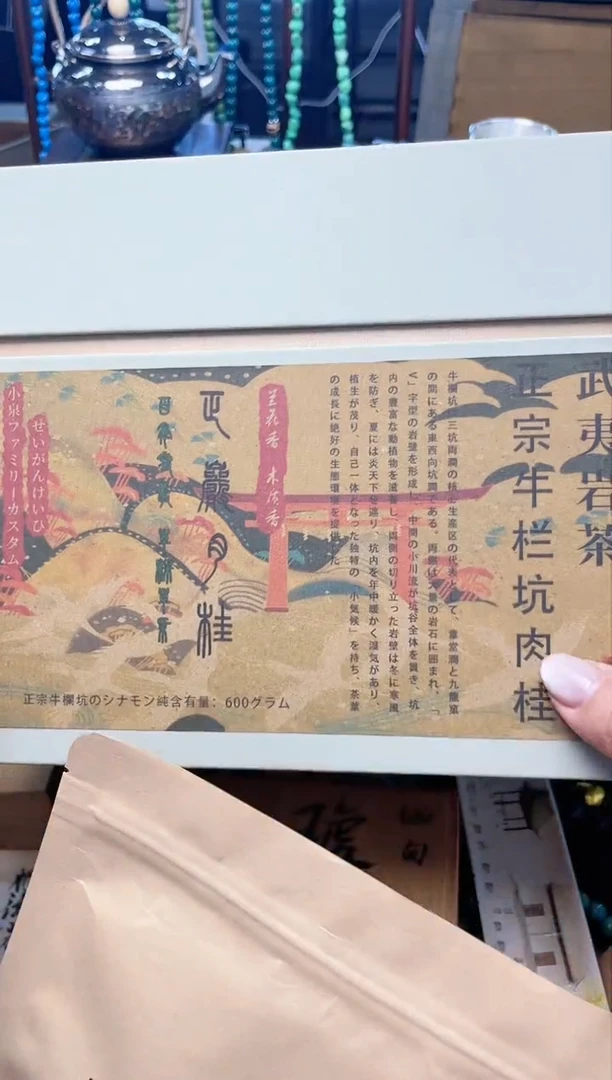 武夷岩茶
正宗牛栏坑肉桂
牛欄坑、三坑両澗の核心生産区の代表として、章堂澗と九龍窠
の間にある東西向坑澗である。両側は大量の岩石に囲まれ、「
V」字型の岩壁を形成し、中間の小川流が坑谷全体を貫き、坑
内の豊富な動植物を滋養し、両側の切り立った岩壁は冬に寒風
を防ぎ、夏には炎天下を遮り、坑内を年中暖かく湿気があり、
植生が茂り、自己一体となった独特の「小気候」を持ち、茶葉
の成長に絶好の生態環境を提供した
兰花香 木质香
正巖肉桂
せいがんけいひ
小泉ファミリーカスタム
正宗牛欄坑のシナモン純含有量：600グラム